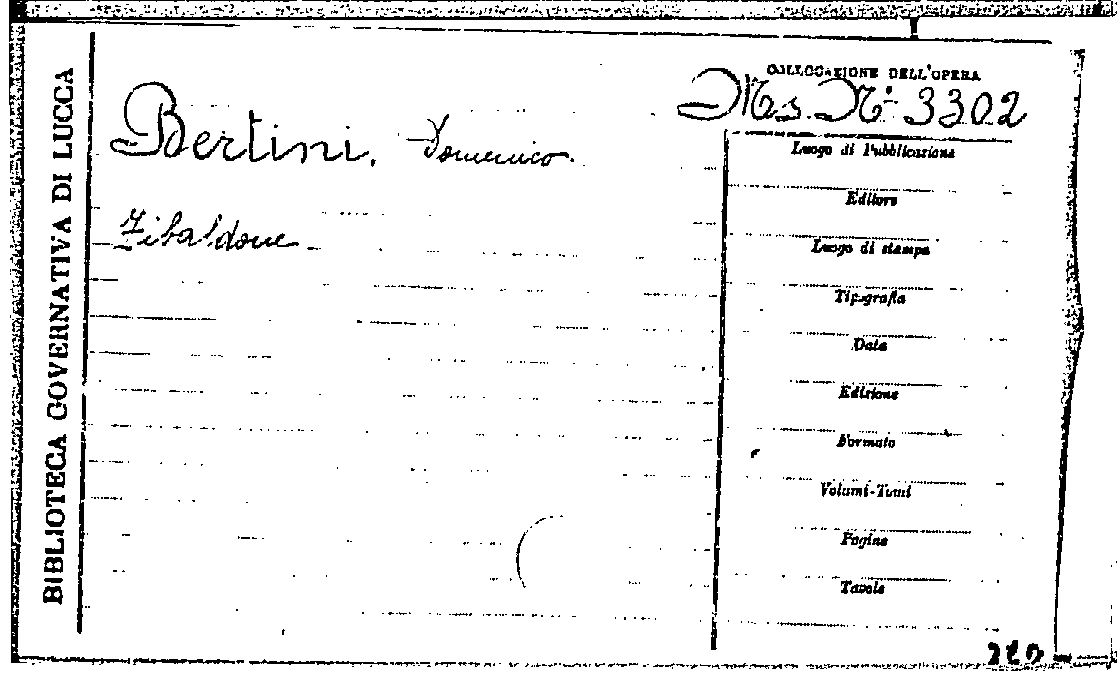 BIBLIOTECA GOVERNATIVA DI LUCCA
COLLOCAZIONE DELL'OPERA
Ms. N.º 3302
Bertini, Domenico.
Zibaldone
Luogo di Pubblicazione
Editore
Luogo di stampa
Tipografia
Data
Edizione
Formato
Volumi-Tomi
Pagine
Tavole